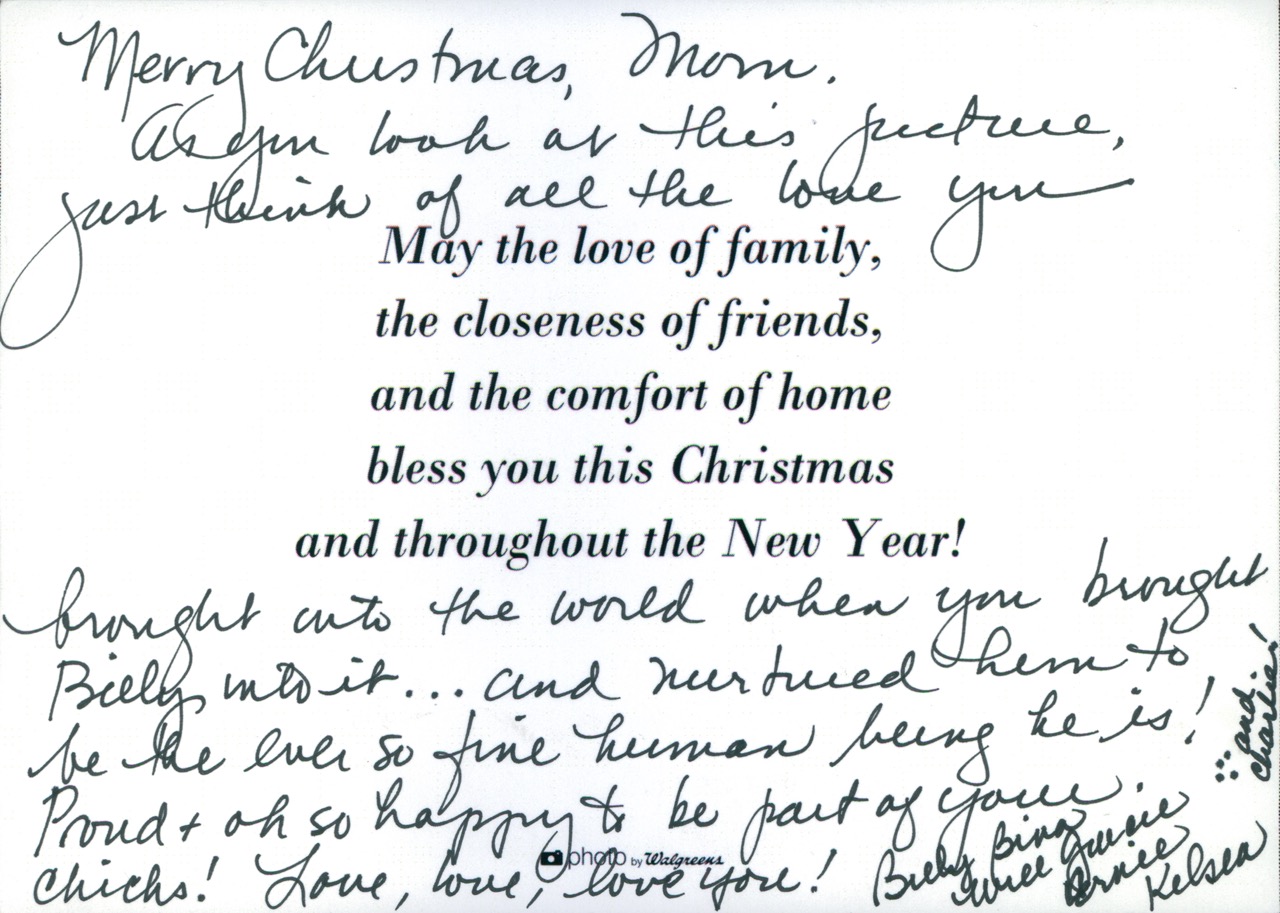 Merry Christmas, Mom.
As you look at this picture,
just think of all the love you
May the love of family,
the closeness of friends,
and the comfort of home
bless you this Christmas
and throughout the New Year!
brought into the world when you brought
Billy into it... and nurtured him to
be the ever so fine human being he is!
Proud + oh so happy to be part of your
chicks! Love, love, love you!
photo by Walgreens
Billy Bina
Will
Bernie
Kelsea
... and
Charlie!